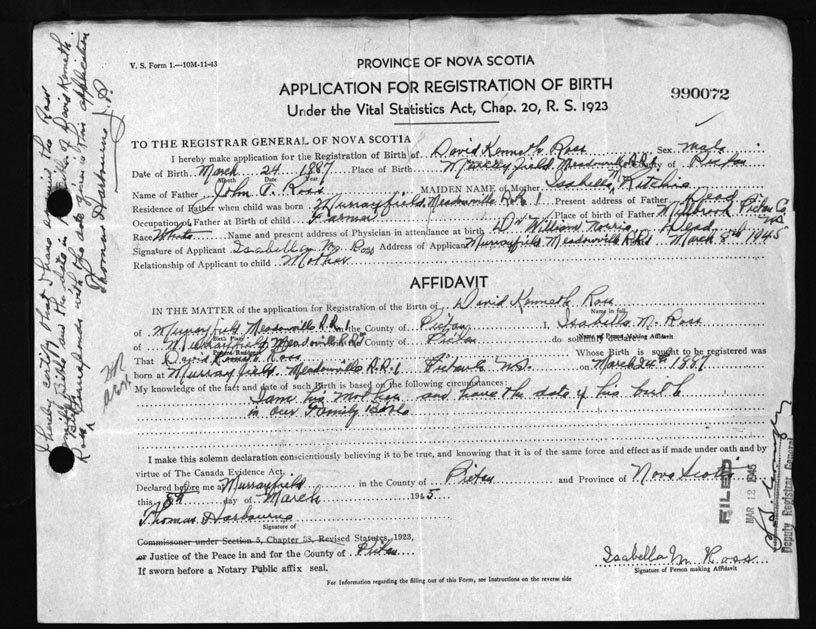 V. S. Form 1.—10M-11-43
PROVINCE OF NOVA SCOTIA
APPLICATION FOR REGISTRATION OF BIRTH
Under the Vital Statistics Act, Chap. 20, R. S. 1923
990072
TO THE REGISTRAR GENERAL OF NOVA SCOTIA
I hereby make application for the Registration of Birth of David Kenneth Ross Sex male
Date of Birth March 24 1887 Place of Birth Murrayfield Meadowville R.R. 1 County of Pictou
Month Date Year
Name of Father John T. Ross MAIDEN NAME of Mother Isabella M Ritchie
Residence of Father when child was born Murrayfield Meadowville R.R. 1 Present address of Father Dead
Occupation of Father at Birth of child Farmer Place of birth of Father Millbrook Pictou Co
Race White Name and present address of Physician in attendance at birth Dr William Norris Dead
Signature of Applicant Isabella M. Ross Address of Applicant Murrayfield Meadowville R.R.1 March 8th 1945
Relationship of Applicant to child Mother
AFFIDAVIT
IN THE MATTER of the application for Registration of the Birth of David Kenneth Ross
Name in full
of Murrayfield Meadowville R.R. 1 in the County of Pictou I, Isabella M. Ross
Birth Place
Name of Person making Affidavit
of Murrayfield Meadowville R.R.1 in the County of Pictou do solemnly declare:
Present Residence
That David Kenneth Ross Whose Birth is sought to be registered was
born at Murrayfield Meadowville R.R. 1 Pictou Co N.S. on March 24th 1887
My knowledge of the fact and date of such Birth is based on the following circumstances:
I am his Mother and have the date of his birth
in our Family Bible
I make this solemn declaration conscientiously believing it to be true, and knowing that it is of the same force and effect as if made under oath and by
virtue of The Canada Evidence Act.
Declared before me at Murrayfield in the County of Pictou and Province of Nova Scotia
this 8th day of March 1945
Thomas Harbourne
Signature of
Commissioner under Section 5, Chapter 38, Revised Statutes, 1923,
or Justice of the Peace in and for the County of Pictou
If sworn before a Notary Public affix seal.
Isabella M Ross
Signature of Person making Affidavit
For Information regarding the filling out of this Form, see Instructions on the reverse side
I hereby certify that I have examined the Ross
Family Bible and the date in it of Birth of David Kenneth
Ross corresponds with the date given in this application
Thomas Harbourne J.P.
FILED
MAR 12 1945
Deputy Registrar General